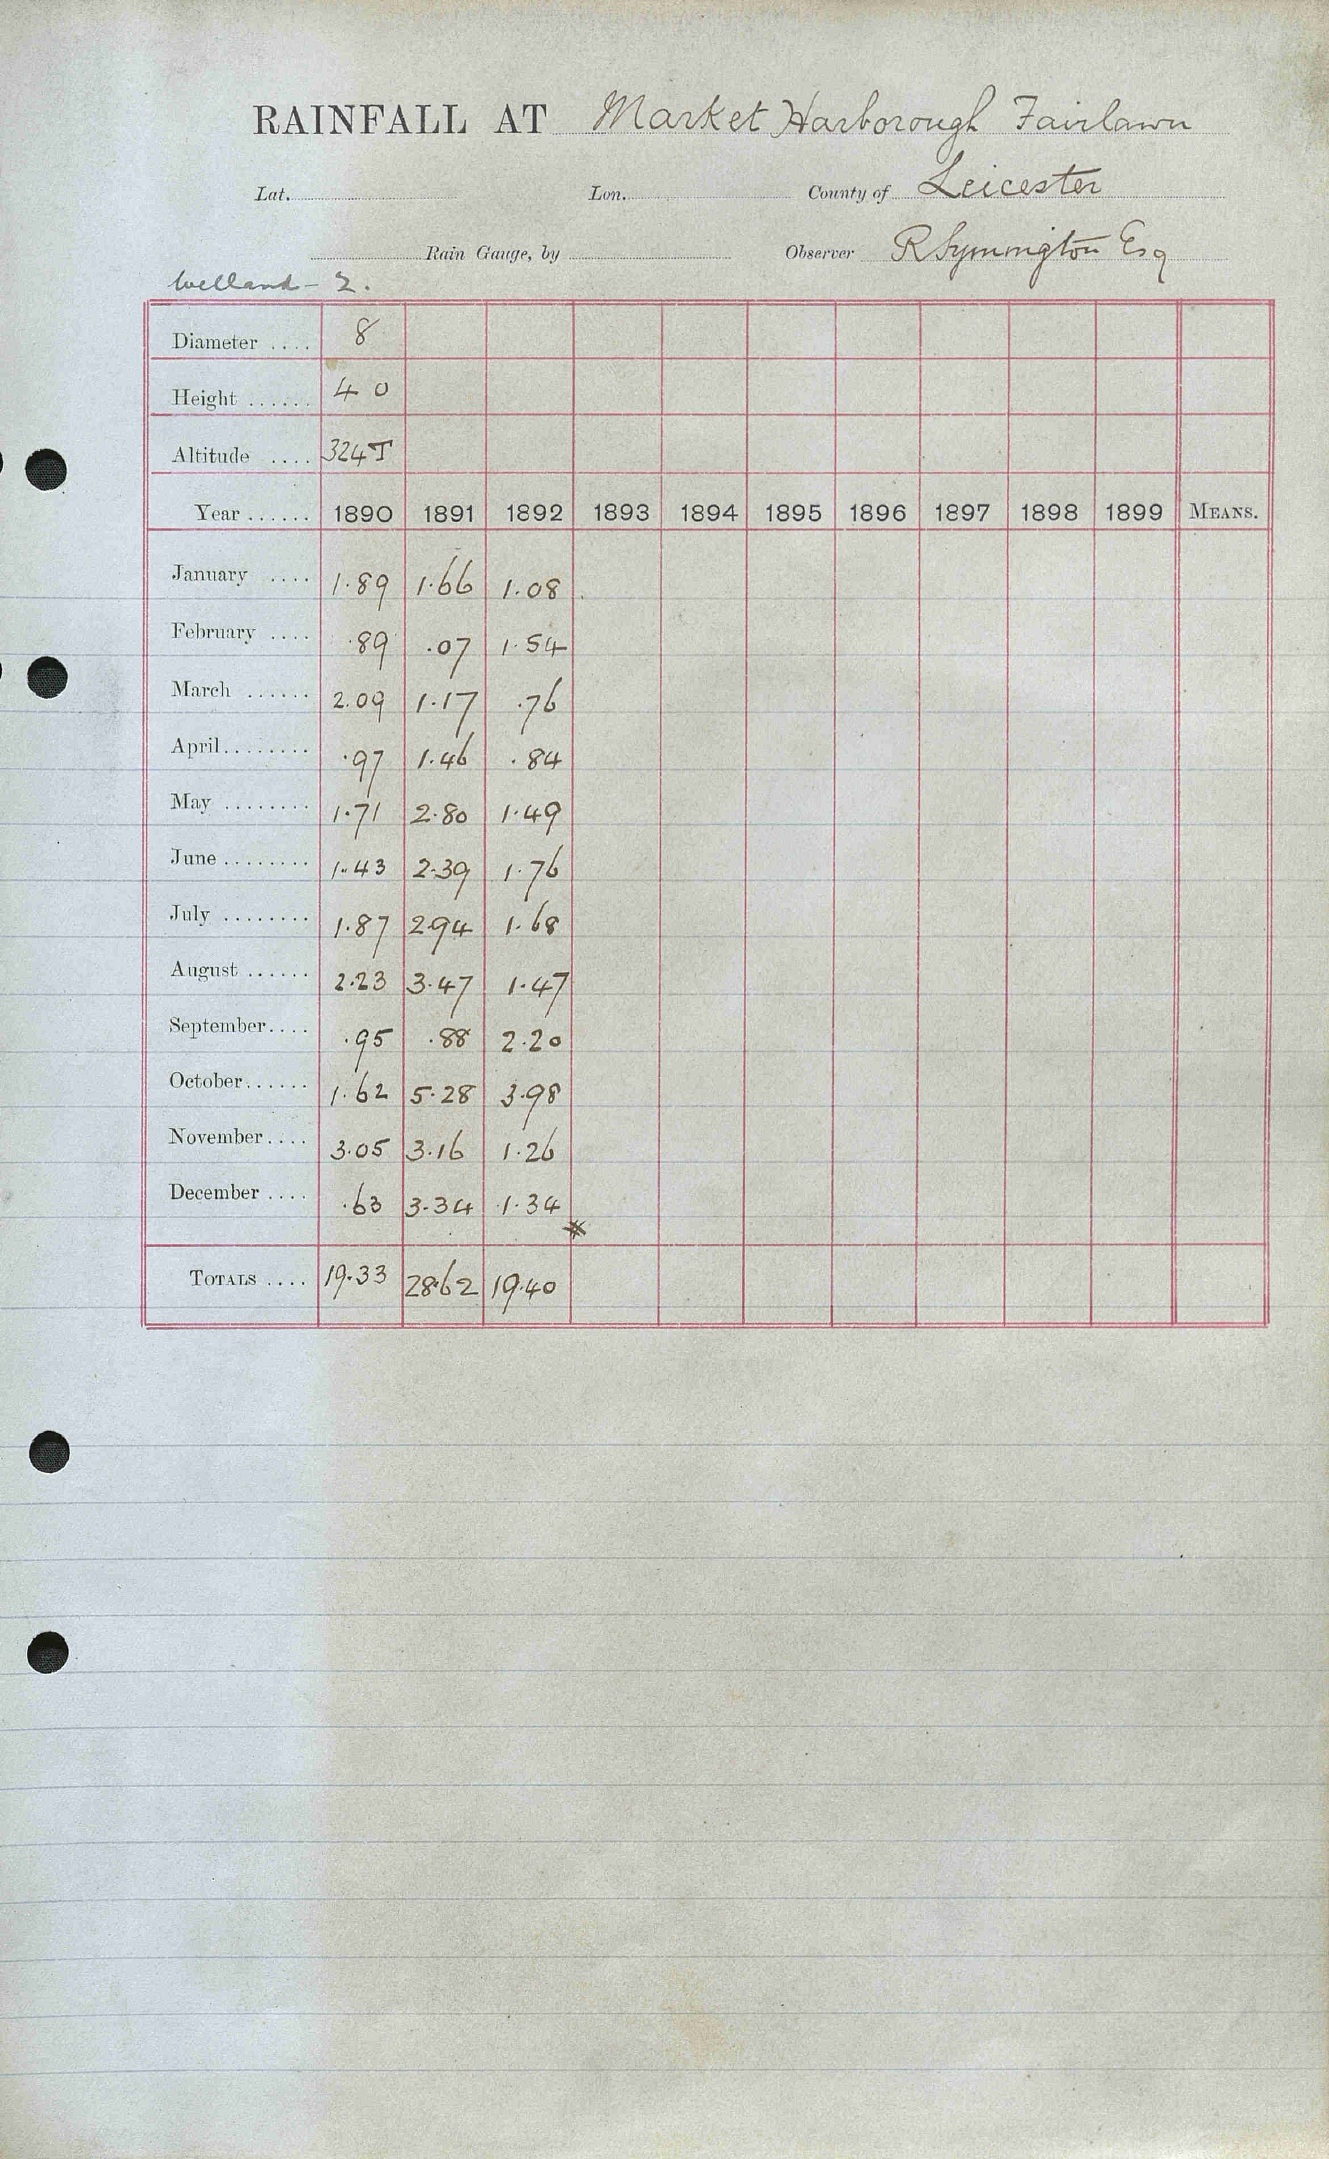 RAINFALL AT Market Harborough Fairlawn
Lat. Lon. County of Leicester
Rain Gauge, by Observer R Symington Esq
Welland - 2.
Diameter .... 8
Height ...... 4 0
Altitude .... 324 T
Year ...... 1890 1891 1892 1893 1894 1895 1896 1897 1898 1899 MEANS.
January .... 1.89 1.66 1.08
February .... .89 .07 1.54
March ...... 2.09 1.17 .76
April ........ .97 1.46 .84
May ........ 1.71 2.80 1.49
June ........ 1.43 2.39 1.76
July ........ 1.87 2.94 1.68
August ...... 2.23 3.47 1.47
September .... .95 .88 2.20
October ...... 1.62 5.28 3.98
November .... 3.05 3.16 1.26
December .... .63 3.34 1.34
*
TOTALS .... 19.33 28.62 19.40